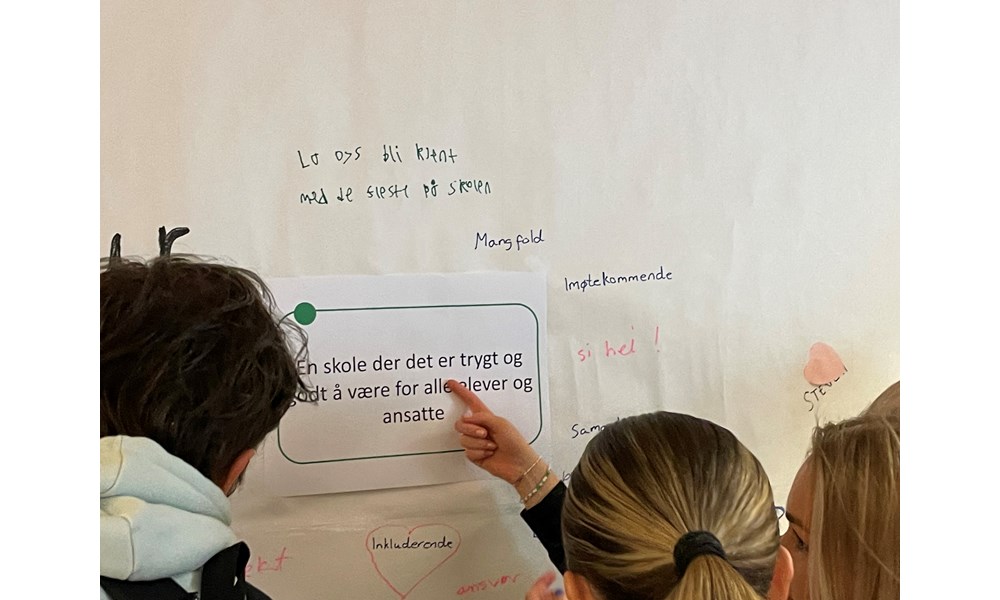 La oss bli kjent
med de fleste på skolen
Mangfold
Imøtekommende
En skole der det er trygt og
godt å være for alle elever og
ansatte
si hei!
Inkluderende
ansvar